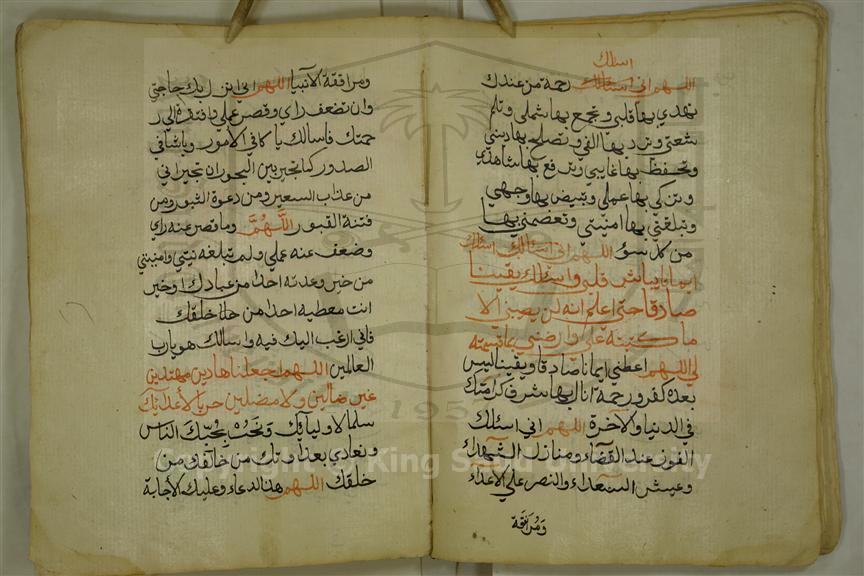 اسئلك
اللهم اني اسئالك رحمة من عندك
تهدي بها قلبي وتجمع بها شملي وتلم
شعثي وترد بها الفي وتصلح بها ديني
وتحفظ بها غايبي وترفع بها شاهدي
وتزكي بها عملي وتبيض بها وجهي
وتبلغني بها امنيتي وتعصمني بها
من كل سوء اللهم اني اسئالك اسئلك
ايمانا يباشر قلبي واسئلك يقينا
صادقا حتى اعلم انه لن يصيبني الا
ما كتبته علي وارضني بما قسمته
لي اللهم اعطني ايمانا صادقا ويقينا ليس
بعده كفر ورحمة انال بها شرف كرامتك
في الدنيا والآخرة اللهم اني اسئلك
الفوز عند القضاء ومنازل الشهداء
وعيش السعداء والنصر على الاعداء
ومرافقة
ومرافقة الانبيا اللهم اني انزل بك حاجتي
وان تضعف رايي وقصر عملي وافتقرت الى ر
حمتك فاسالك يا كافي الامور وياشافي
الصدور كما تجير بين البحور ان تجيرني
من عذاب السعير ومن دعوة الثبور ومن
فتنة القبور اللهم وما قصر عنه راي
وضعف عنه عملي ولم تبلغه نيتي وامنيتي
من خير وعدته احدا من عبادك او خير
انت معطيه احدا من خلقك
فاني ارغب اليك فيه واسالك هو يارب
العالمين اللهم اجعلنا هادين مهتدين
غير ضالين ولا مضلين حربا لأعدائك
سلما لاوليائك ونحب بحبك الناس
ونعادي بعداوتك من خالفك من
خلقك اللهم هذا الدعاء وعليك الاجابة
1957
Copyright © King Saud University